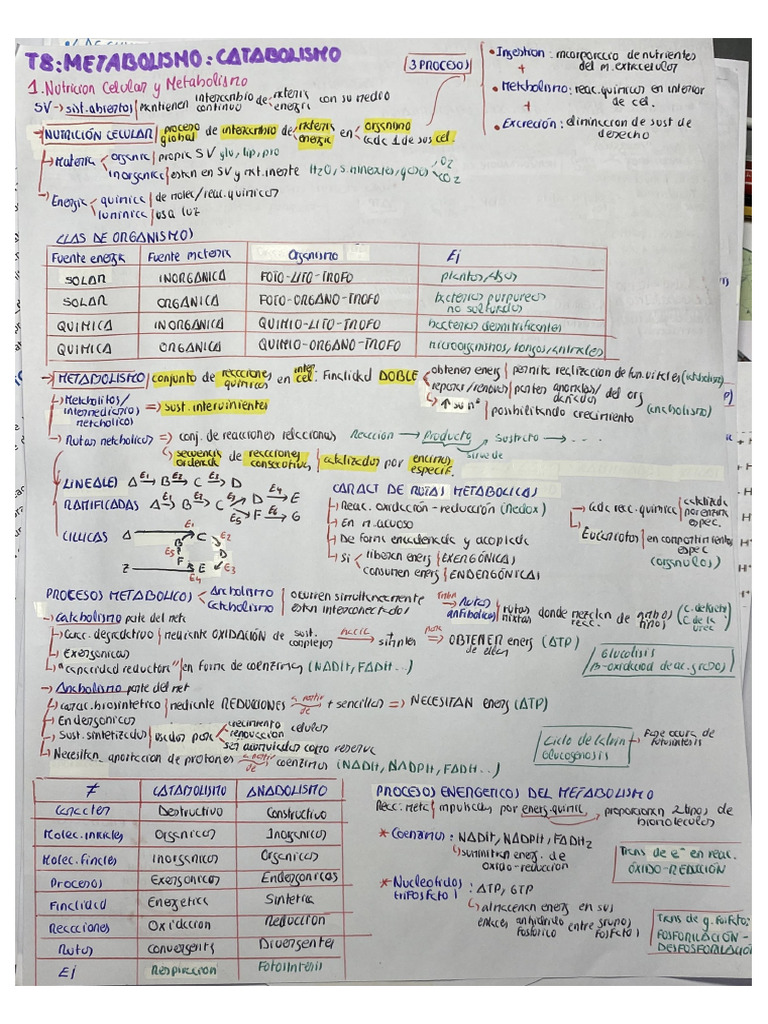 T8: METABOLISMO: CATABOLISMO
1. Nutricion Celular y Metabolismo
SV → sist. abiertos | mantienen intercambio continuo de materia energia con su medio
3 PROCESOS
• Ingestion: incorporacio de nutrientes del m. extracelular
+
• Metabolismo: reac. quimicas en interior de cel.
+
• Excreción: eliminacion de sust de desecho
→ NUTRICIÓN CELULAR | proceso global de intercambio de materia energia en organismo cada 1 de sus cel.
→ Materia organic | propia SV glu, lip, pro
inorganic | estan en SV y mat. inerte H2O, s. minerales, gases O2 CO2
→ Energia quimica | de molec/reac. quimicas
luminica | usa luz
CLAS DE ORGANISMOS
Fuente energia Fuente materia Organismo Ej
SOLAR INORGANICA FOTO-LITO-TROFO plantas, algas
SOLAR ORGANICA FOTO-ORGANO-TROFO bacterias purpureas no sulfureas
QUIMICA INORGANICA QUIMIO-LITO-TROFO bacterias desnitrificantes
QUIMICA ORGANICA QUIMIO-ORGANO-TROFO microorganismos, hongos, animales
→ METABOLISMO | conjunto de reacciones quimicas en inter. cel. Finalidad DOBLE
obtener energ | permite realizacion de fun. vitales (catabolismo)
reparar/renovar | partes del org
posibilitando crecimiento (anabolismo)
→ Metabolitos/ intermediarios metabolicos ⇒ sust. intervinientes
→ Rutas metabolicas ⇒ conj. de reacciones relacionas Reaccion → Producto Sustrato → ...
sirve de
secuencia ordenada de reacciones consecutivas | catalizadas por enzimas especif.
LINEALES A E1 B E2 C E3 D
RAMIFICADAS A E1 B E2 C E3 D E4 E
E5 F E6 G
CICLICAS A E1 C E2 D E3 E E4 F E5 B
Z
CARACT DE RUTAS METABOLICAS
→ Reac. oxidacion-reducción (Redox)
→ En m. acuoso
→ De forma encadenada y acoplada
→ Si liberan energ | EXERGÓNICAS
consumen energ | ENDERGÓNICAS
→ Cada reac. quimica | catalizada por enzima espec.
→ Eucariotas | en compartimentos espec (organulos)
PROCESOS METABOLICOS Anabolismo Catabolismo | ocurren simultaneamente estan interconectados → Rutas anfibolicas | rutas mixtas donde mezclan reac. de ambos
→ Catabolismo parte del meta
→ Carac. degradativo | mediante OXIDACIÓN de sust. complejos hacia + simples para OBTENER energ (ATP)
→ Exergonicas
→ "Capacidad reductora" | en forma de coenzimas (NADH, FADH...)
Glucolisis
B-oxidacion de ac. grasos
→ Anabolismo parte del met
→ Carac. biosintetico | mediante REDUCCIONES a partir de + sencillas ⇒ NECESITAN energ (ATP)
→ Endergonicas
→ Sust. sintetizadas | usadas para crecimiento renovacion celular
ser acumuladas como reserva
→ Necesitan aportacion de protones a partir de coenzimas (NADH, NADPH, FADH...)
Ciclo de Calvin → Fase oscura de fotosintesis
Glucogenosis
≠ CATABOLISMO ANABOLISMO
Caracter Destructivo Constructivo
Molec. iniciales Organicas Inorganicas
Molec. finales Inorganicas Organicas
Procesos Exergonicos Endergonicos
Finalidad Energetica Sintetica
Reacciones Oxidacion Reducción
Rutas Convergents Divergentes
Ej Respiracion Fotosintesis
PROCESOS ENERGETICOS DEL METABOLISMO
Reac. meta | impulsadas por energ. quimic → proporcionan 2 tipos de biomoleculas
* Coenzimas: NADH, NADPH, FADH2
suministran energ. de oxido-reduccion
Trans de e- en reac. ÓXIDO-REDUCCIÓN
* Nucleotidos trifosfato: ATP, GTP
almacenan energ en sus enlaces anhidrido fosforico entre grupos fosfato
Trans de g. fosfato: FOSFORILACIÓN-DESFOSFORILACIÓN